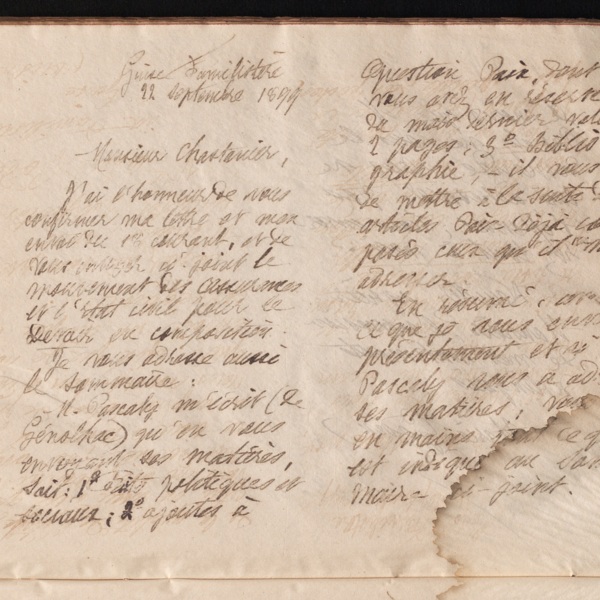 Guise Familistère
22 septembre 1899
Monsieur Chastanier,
J'ai l'honneur de vous
confirmer ma lettre et mon
envoi du 1er courant, et de
vous envoyer ci-joint le
mouvement des assurances
et l'État civil pour le
Devoir en composition.
Je vous adresse aussi
le sommaire :
M. Pascaly m'écrit (de
Génolhac) qu'en vous
envoyant ses matières,
soit : 1º faits politiques et
sociaux ; 2º ajoutés à
Question Paix, dont
vous avez en réserve
de mars dernier
2 pages ; 3º Biblio
graphie, - il vous
de mettre à la suite
articles Paix déjà
posés ceux qu'il
adresser.
En résumé,
ce que je vous
présentement et
Pascaly vous a
ses matières,
en mains
est indiqué au Som
maire ci-joint.